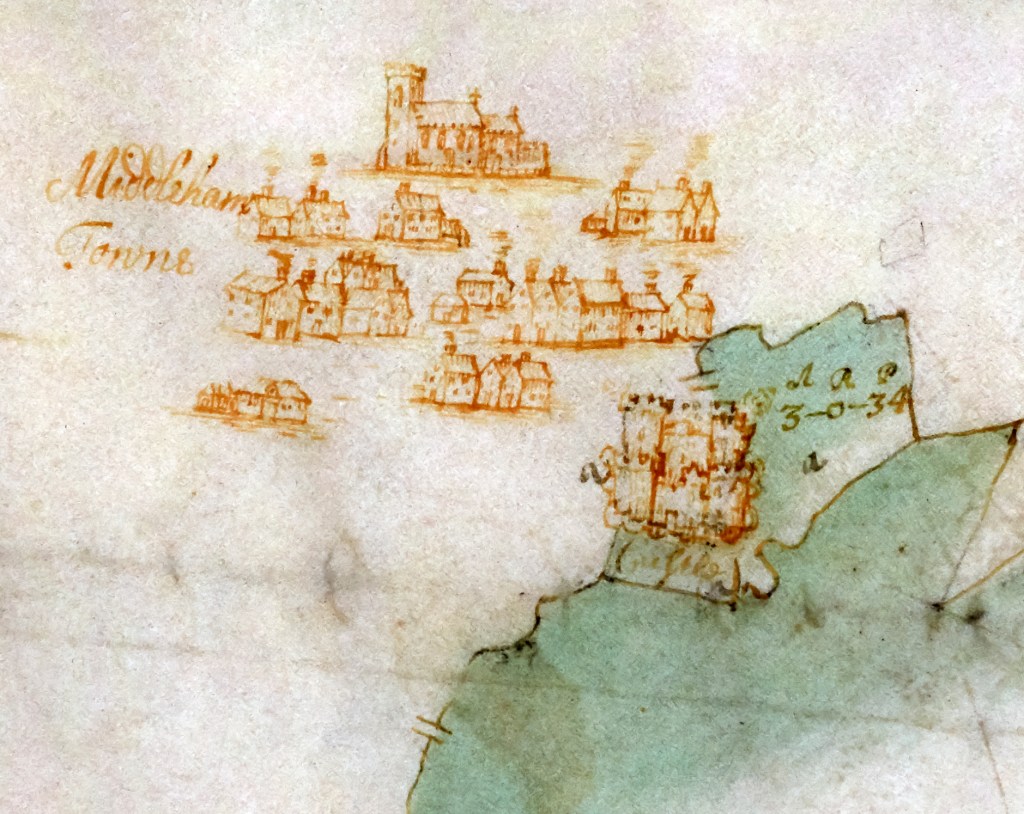 Middleham
Towne
A R P
3-0-34
a
a
Castle